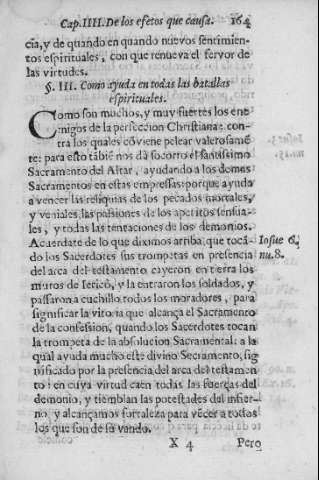 Cap. IIII. De los efetos que causa. 164
cia, y de quando en quando nuevos sentimien-
tos espirituales, con que renueva el fervor de
las virtudes.
§. III. Como ayuda en todas las batallas
espirituales.
Como son muchos, y muy fuertes los ene
migos de la perfeccion Christiana: con-
tra los quales cõviene pelear valerosamẽ
te: para esto tãbiẽ nos dà socorro el santissimo
Sacramento del Altar, ayudando a los demes
Sacramentos en estas empressas: porque ayuda
a vencer las reliquias de los pecados mortales,
y veniales, las passiones de los apetitos sensua-
les, y todas las tentaciones de los demonios.
Acuerdate de lo que diximos arriba, que tocã- Iosue 6.
do los Sacerdotes sus trompetas en presencia nu. 8.
del arca del testamento cayeron en tierra los
muros de Iericò, y la entraron los soldados, y
passaron a cuchillo todos los moradores, para
significar la vitoria que alcança el Sacramento
de la confession, quando los Sacerdotes tocan
la trompeta de la absolucion Sacramental: a la
qual ayuda mucho este divino Secramento, sig
nificado por la presencia del arca del testamen
to: en cuya virtud caen todas las fuerças del
demonio, y tiemblan las potestades del infier-
no, y alcançamos fortaleza para vẽcer a todos
los que son de su vando.
X 4 Pero